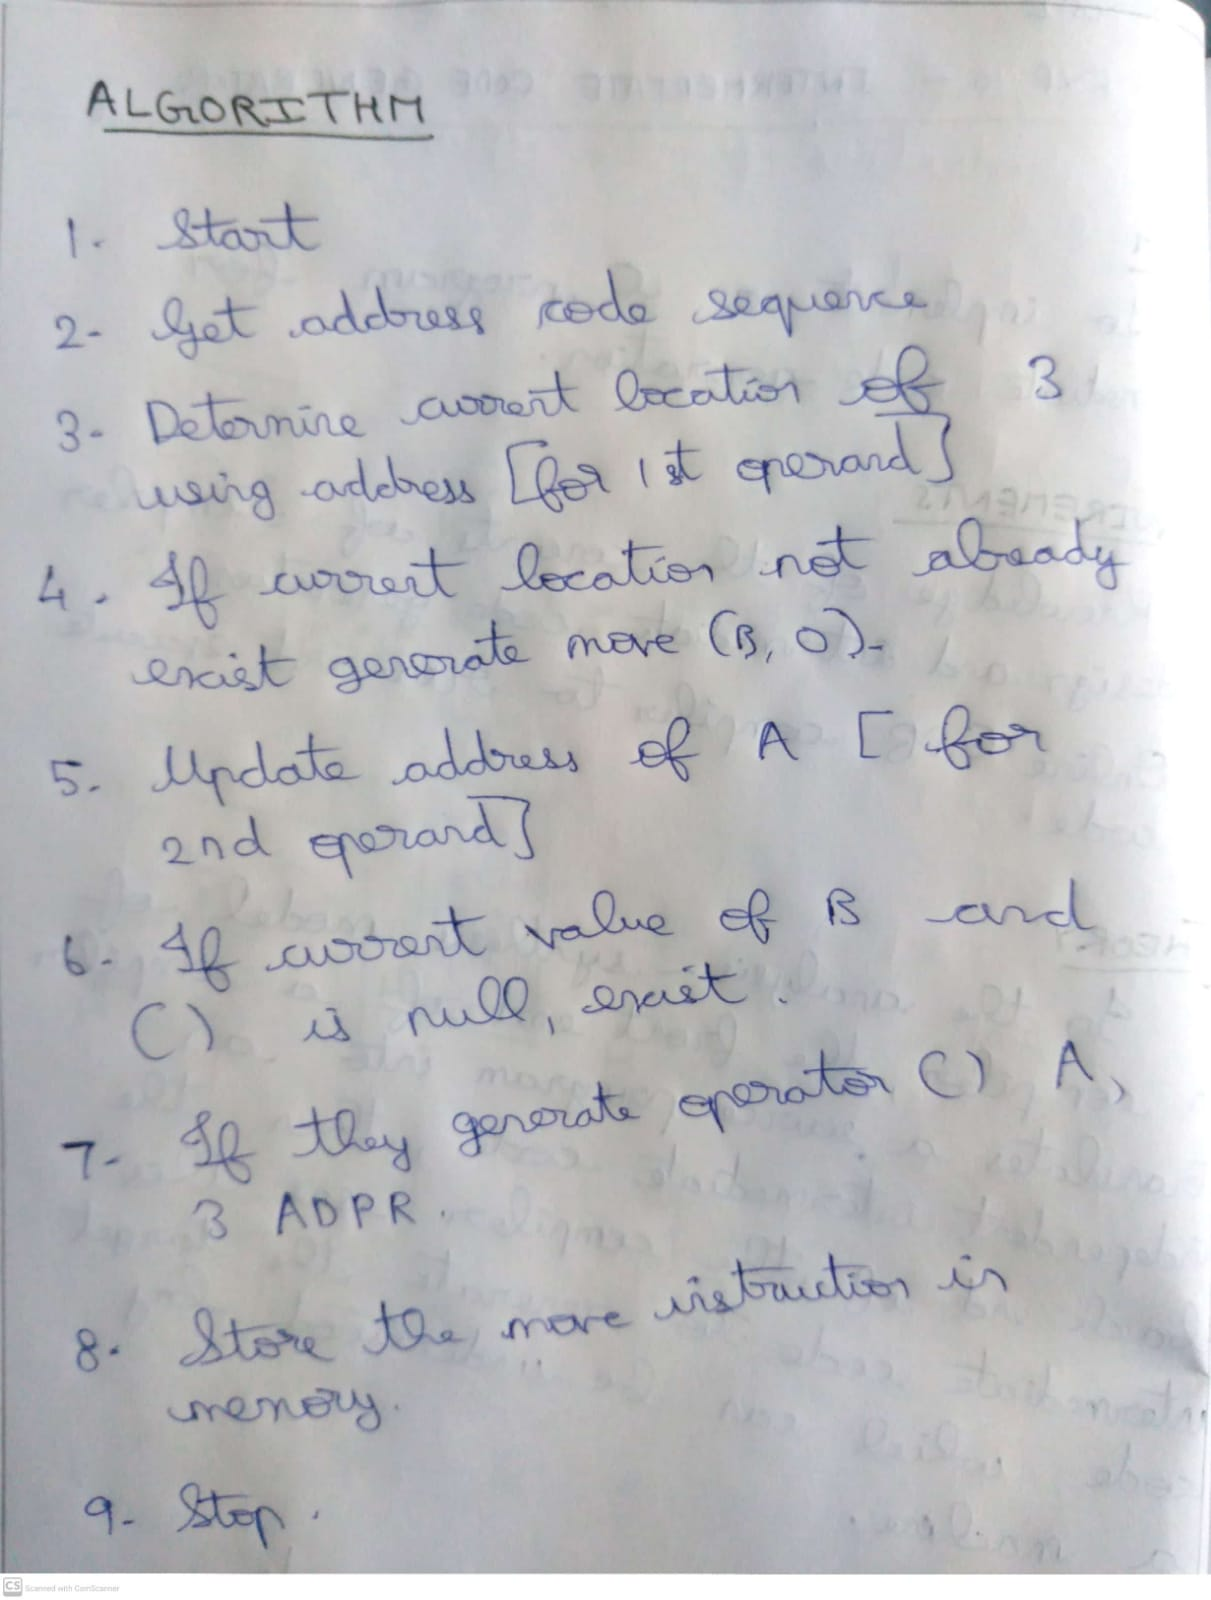 ALGORITHM
1. Start
2- Get address code sequence
3- Determine current location of 3
using address [for 1st operand]
4. If current location not already
exist generate move (B, O).
5. Update address of A [for
2nd operand]
6. If current value of B and
() is null, exist.
7- If they generate operator () A,
3 ADPR.
8. Store the move instruction in
memory.
9- Stop.
CS Scanned with CamScanner